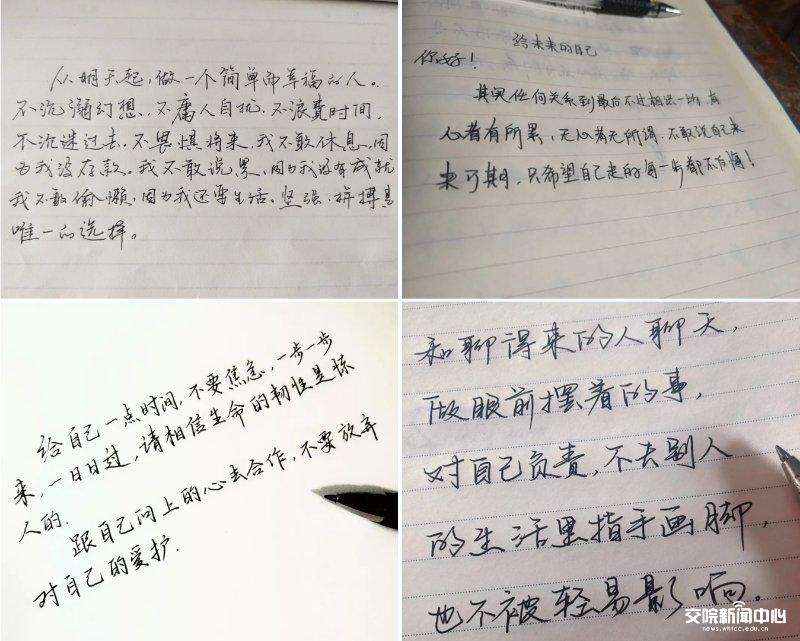 从明天起，做一个简单而幸福的人。
不沉溺幻想，不庸人自扰，不浪费时间，
不沉迷过去，不畏惧将来，我不敢休息，因
为我没存款。我不敢说累，因为我没有成就
我不敢偷懒，因为我还要生活。坚强、拼搏是
唯一的选择。
给未来的自己
你好！
其实任何关系到最后不过相识一场，有
心者有所累，无心者无所得，不敢说自己未
来可期，只希望自己走的每一步都不白悔！
给自己一点时间，不要焦急，一步一步
来，一日日过，请相信生命的韧性是惊
人的．
跟自己向上的心去合作，不要放弃
对自己的爱护．
和聊得来的人聊天，
做眼前摆着的事，
对自己负责，不去别人
的生活里指手画脚，
也不被轻易影响。
交院新闻中心
news.whtcc.edu.cn